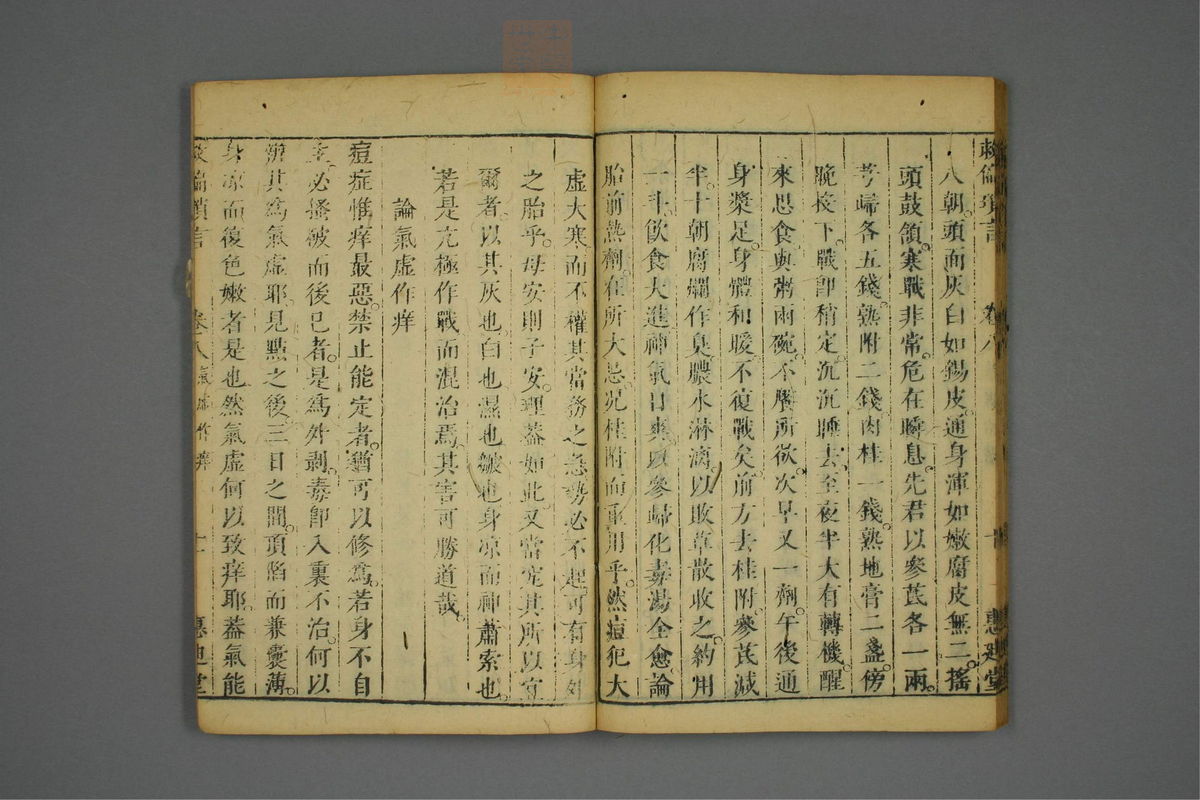 救偏瑣言 卷八 十 惠迪堂
八朝頭面灰白如錫皮通身渾如嫩腐皮無二搖
頭鼓頷寒戰非常危在瞬息先君以參芪各一兩
芎歸各五錢熟附二錢肉桂一錢熟地膏二盞傍
晚接下戰即稍定沉沉睡去至夜半大有轉機醒
來思食與粥兩碗不饜所欲次早又一劑午後通
身漿足身體和暖不復戰矣前方去桂附參芪減
半十朝腐爛作臭膿水淋漓以敗草散收之約用
一斗飲食大進神氣日爽以參歸化毒湯全愈論
胎前熱劑在所大忌况桂附而重用乎然痘犯大
虛大寒而不權其當務之急勢必不起可有身外
之胎乎母安則子安理蓋如此又當究其所以宜
爾者以其灰也白也濕也皺也身凉而神蕭索也
若是亢極作戰而混治焉其害可勝道哉
論氣虛作痒
痘症惟痒最惡禁止能定者猶可以修爲若身不自
主必搔破而後已者是爲外剥毒即入裏不治何以
辨其爲氣虛耶見點之後三日之間頂陷而兼囊薄
身凉而復色嫩者是也然氣虛何以致痒耶蓋氣能
救偏瑣言 卷八 氣虛作痒 十一 惠迪堂